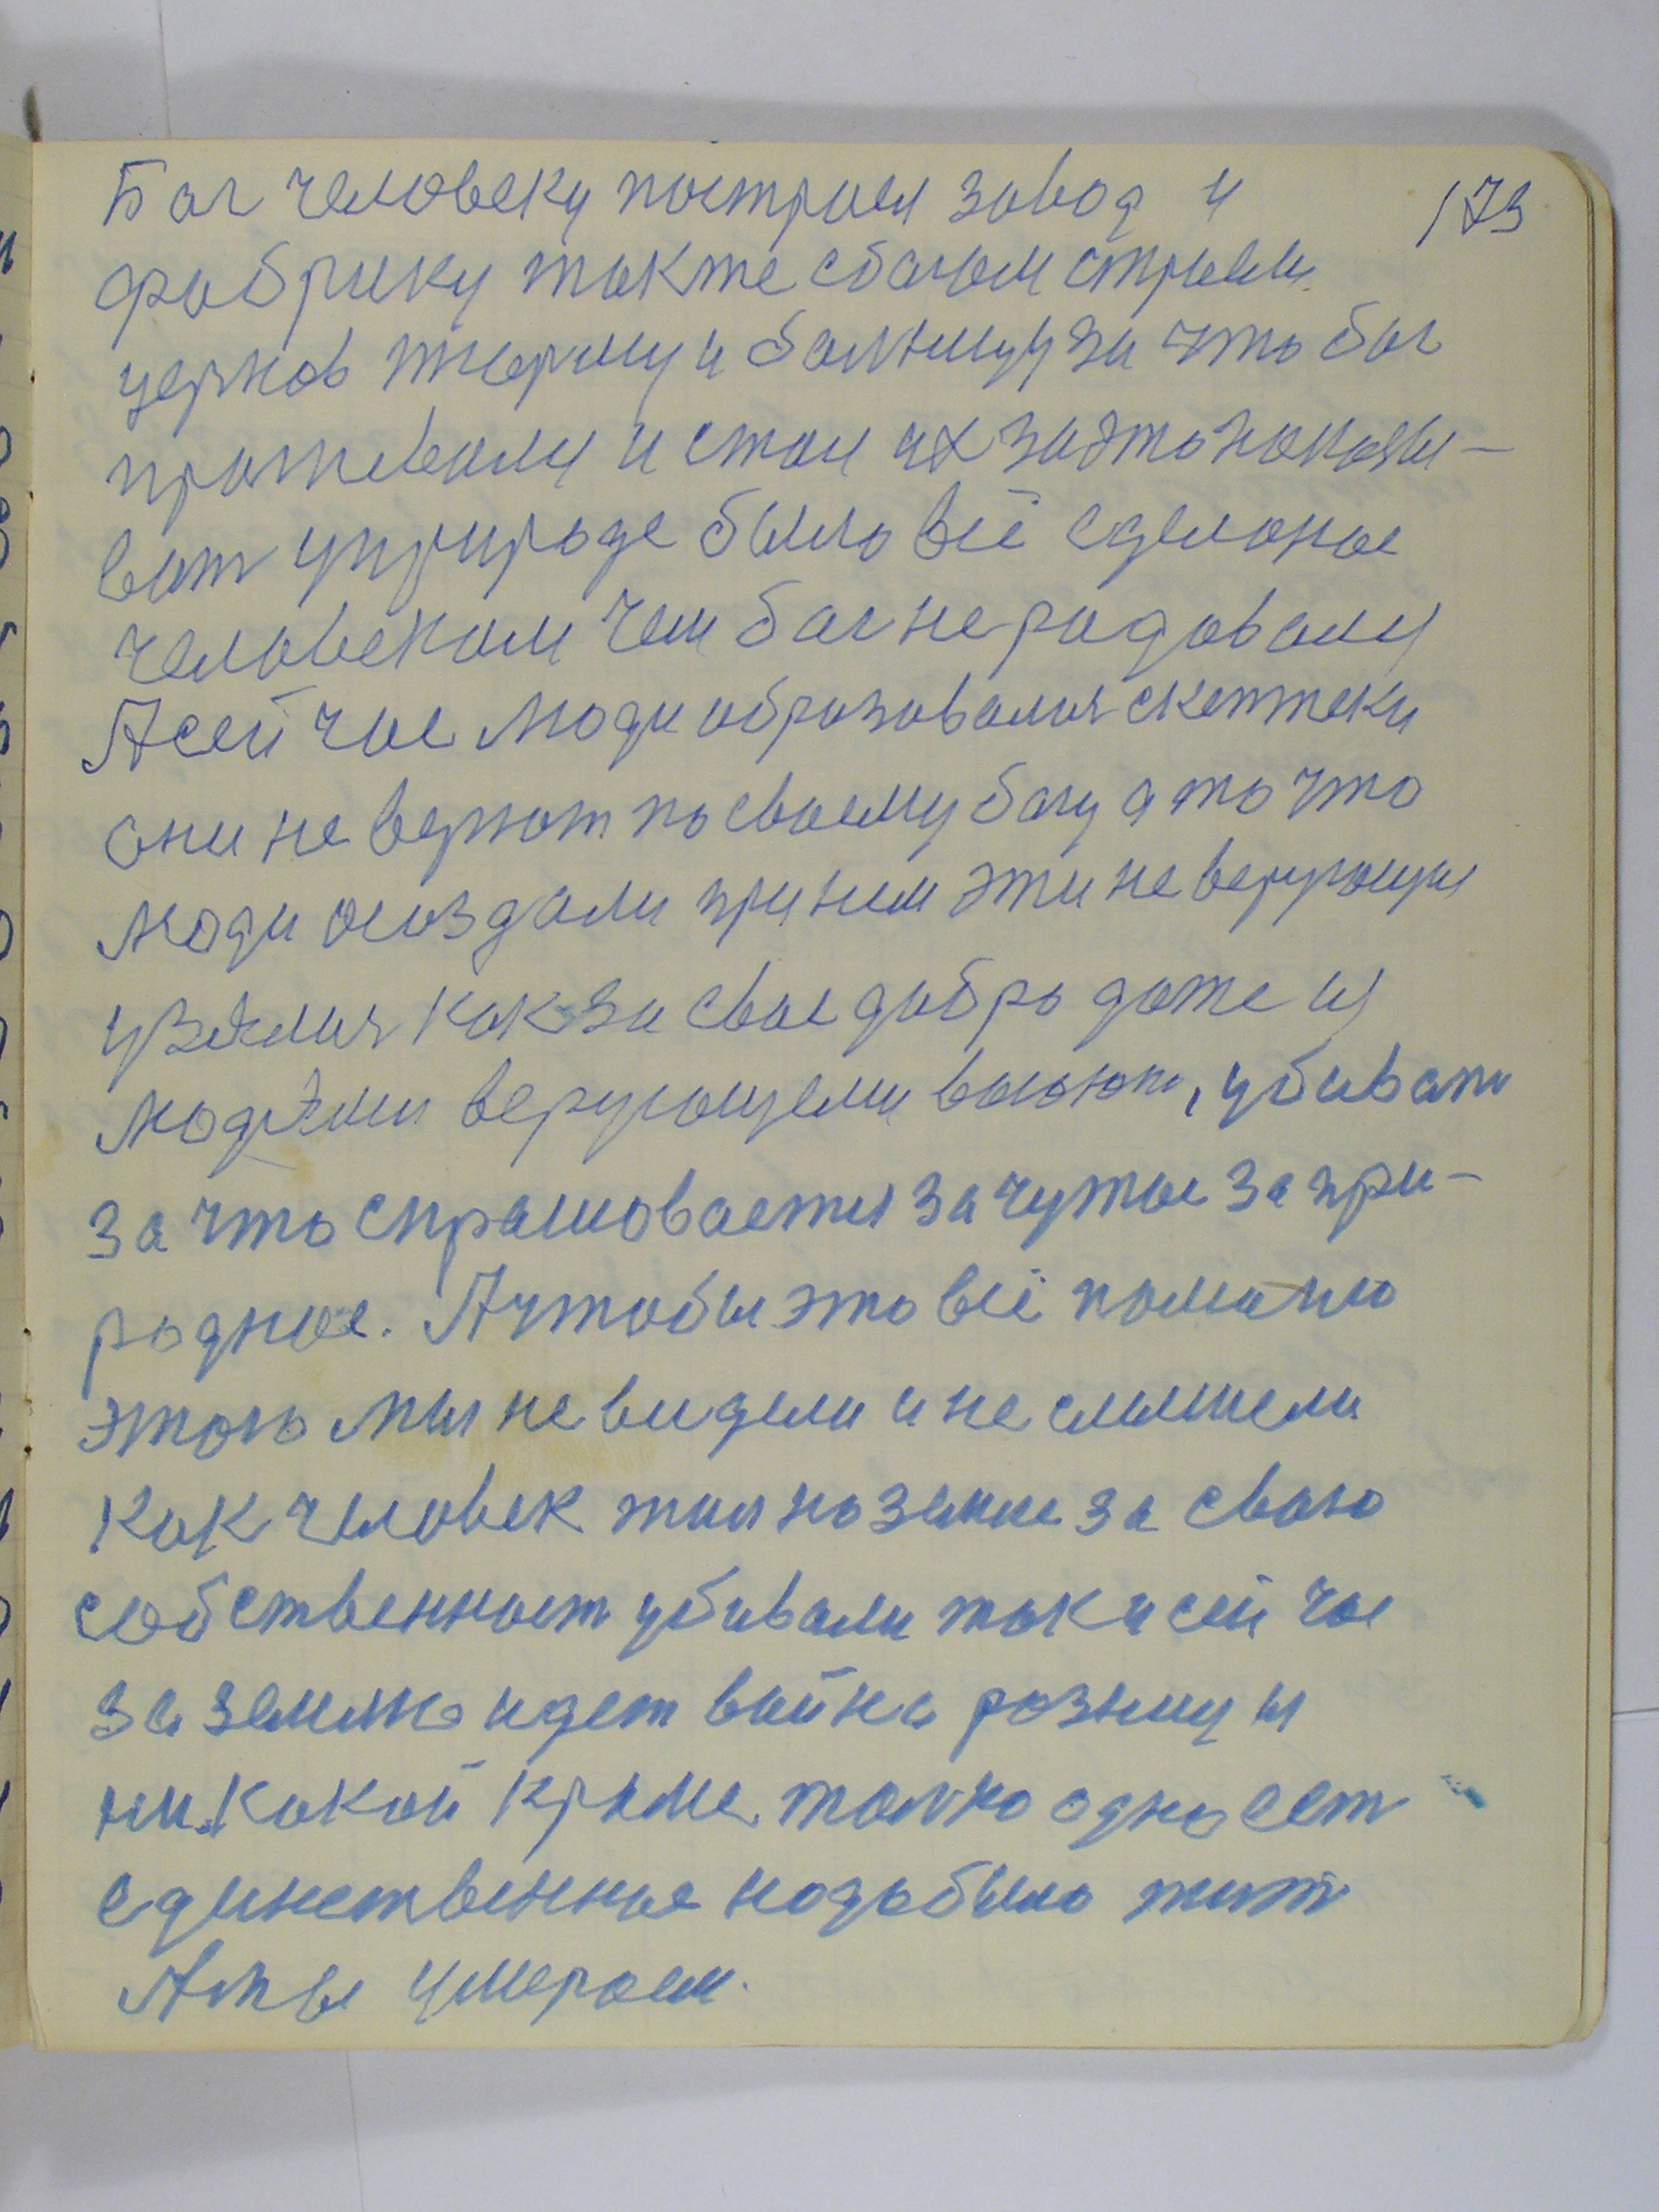 Бог человеку построел завод и
173
фабрику также с богом строели
церков тюрму и болницу за что бог
прогневалц и стал их за это наказы-
ват уприроде было всё сделоное
человеком чем бог не радовалц
А сей час люди образовалия скептеки
они не верют по своему богу а то что
люди осоздали при нем эти не верующия
взялия как за свое добро даже из
людями верующеми воюют, убиват
за что спрашовается за чужое за при-
родное. А чтобы это всё помагло
этого мы не видели и не слышели
как человек жил на земле за свою
собственност убивали так и сей час
за землю идет война розницы
никокой кроме толко одно ест
единственное надо было жит
А мы умероем.